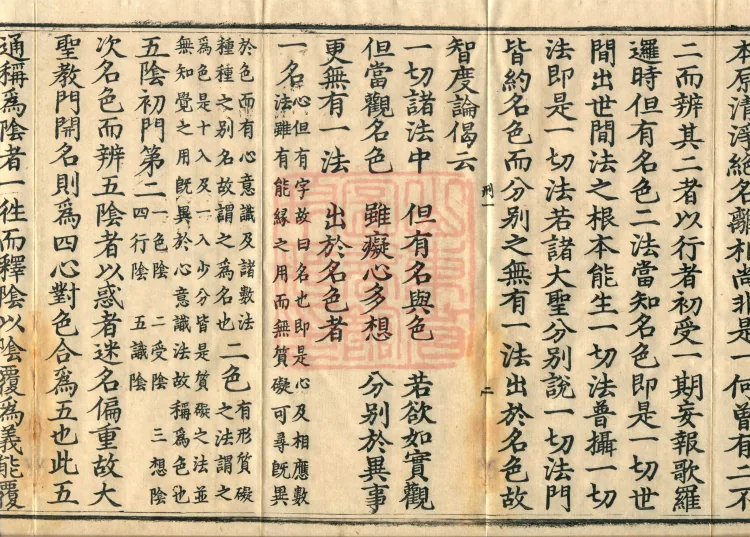 本原清淨絕名離相尚非是一何曾有二不
二而辨其二者以行者初受一期妄報歌羅
邏時但有名色二法當知名色即是一切世
間出世間法之根本能生一切法普攝一切
法即是一切法若諸大聖分別說一切法門
皆約名色而分別之無有一法出於名色故
刑一
二
智度論偈云
一切諸法中　但有名與色　若欲如實觀
但當觀名色　雖癡心多想　分別於異事
更無有一法　出於名色者
一名心但有字故曰名也即是心及相應數
法雖有能緣之用而無質礙可尋既異
於色而有心意識及諸數法
種種之別名故謂之為名也
二色有形質礙
之法謂之
為色是十入及一入少分皆是質礙之法並
無知覺之用既異於心意識法故稱為色也
五陰初門第二
一色陰　二受陰　三想陰
四行陰　五識陰
次名色而辨五陰者以惑者迷名偏重故大
聖教門開名則為四心對色合為五也此五
通稱為陰者一往而釋陰以陰覆為義能覆